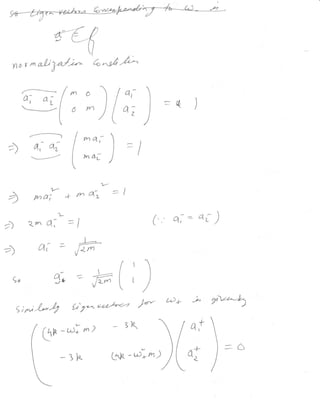 so Eigen vectors corresponding to ω₋ is
g⁻ =
normalization condition
a₁⁻ a₂⁻ ( m 0 0 m ) ( a₁⁻ a₂⁻ ) = 1
⇒ a₁⁻ a₂⁻ ( ma₁⁻ ma₂⁻ ) = 1
⇒ ma₁⁻² + ma₂⁻² = 1
⇒ 2ma₁⁻² = 1 (∵ a₁⁻ = a₂⁻)
⇒ a₁⁻ = 1/√2m
So g⁻ = 1/√2m ( 1 1 )
Similarly Eigenvectors for ω₊ is given by
( (4k - ω₊²m) - 3k
- 3k (4k - ω₊²m) ) ( a₁⁺ a₂⁺ ) = 0